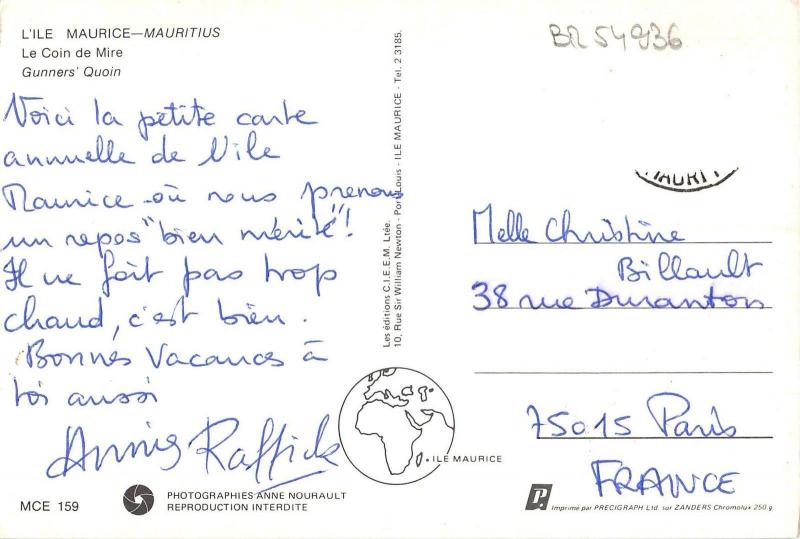 L'ILE MAURICE—MAURITIUS
Le Coin de Mire
Gunners' Quoin
Voici la petite carte
annuelle de l'île
Maurice où nous prenons
un repos "bien mérité"!
Il ne fait pas trop
chaud, c'est bien.
Bonnes Vacances à
toi aussi
Annis Raffick
MCE 159
PHOTOGRAPHIES ANNE NOURAULT
REPRODUCTION INTERDITE
Les éditions C.I.E.E.M. Ltée.
10, Rue Sir William Newton - Port Louis - ILE MAURICE - Tel. 2 3185.
ILE MAURICE
BR 54936
MAURIT
Melle Christine
Billault
38 rue Duranton
75015 Paris
FRANCE
Imprimé par PRECIGRAPH Ltd. sur ZANDERS Chromolux 250 g